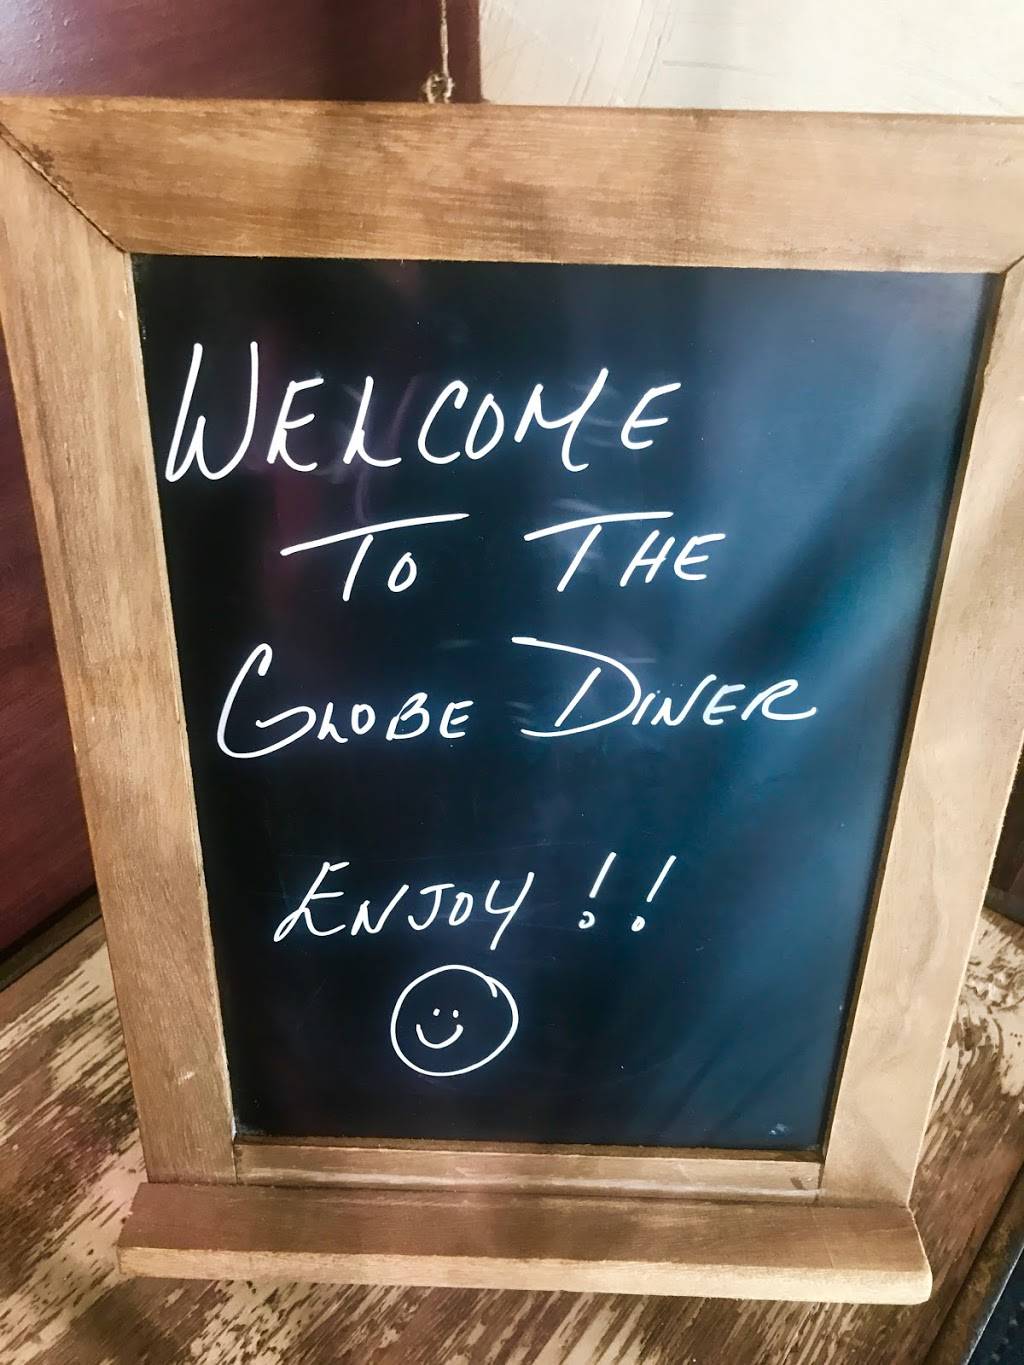 WELCOME
TO THE
GLOBE DINER
ENJOY!!